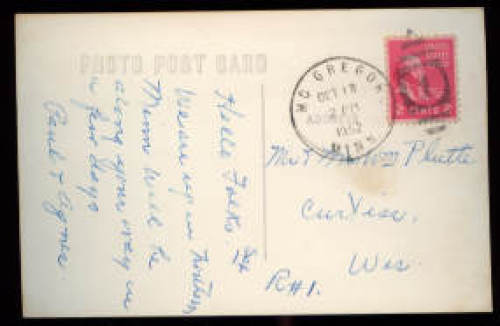 PHOTO POST CARD
MC GREGOR
OCT 13
PM
1952
MINN
Hello Folks.
We are up in Northern
Minn will be
along your way in
a few days
Paul & Agnes.
Mr & Mrs Wm Plutte
Curtiss.
Wis.
R#1.